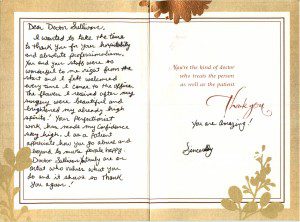 Dear Doctor Sullivan,
I wanted to take the time
to thank you for your hospitality
and absolute professionalism.
You and your staff were so
wonderful to me right from the
start and I felt welcomed
every time I come to the office.
The flowers I received after my
surgery were beautiful and
brightened my already high
spirits! Your Perfectionist
work has made my confidence
sky high. I as a Patient
appreciate how you go above and
beyond to make people happy.
Doctor Sullivan truly are an
artist who values what you
do and it shows so Thank
You again!
You're the kind of doctor
who treats the person
as well as the patient.
Thank you
You are amazing!
Sincerely